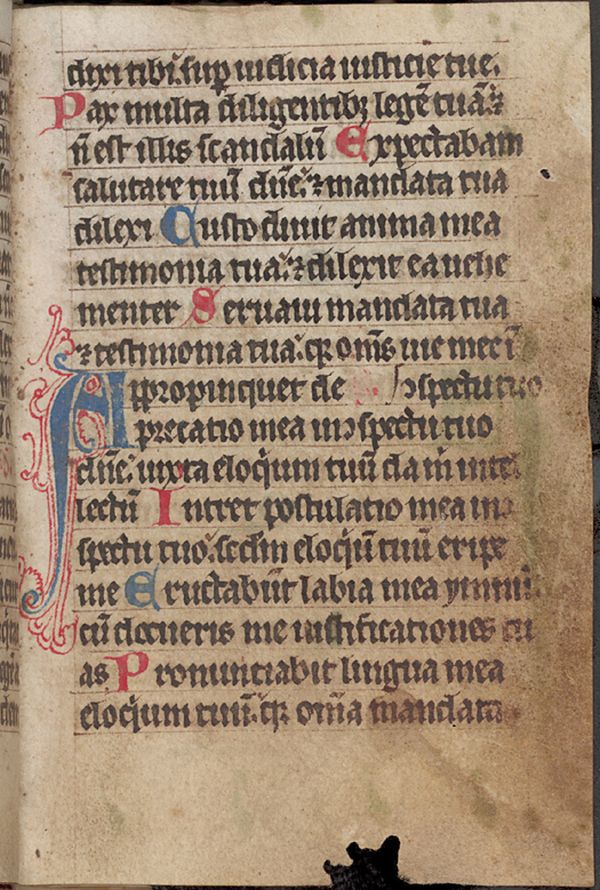 dixi tibi. sup iudicia iusticie tue.
Pax multa diligentibꝫ legē tuā. ⁊
n̄ est illis scandalū Expectabam
salutare tuū dn̄e. ⁊ mandata tua
dilexi Custodiuit anima mea
testimonia tua. ⁊ dilexit ea uehe
menter Seruaui mandata tua
⁊ testimonia tua. qr om̄s uie mee ī
Appropinquet de spectu tuo
precatio mea inɔspectu tuo
dn̄e. iuxta eloqium tuū da m̄ intel
lectū Intret postulatio mea inɔ
spectu tuo. scdm eloqiū tuū eripe
me Eructabūt labia mea ymnū.
cū docueris me iustificationes tu
as Pronunciabit lingua mea
eloqium tuū. qr om̄ia mandata